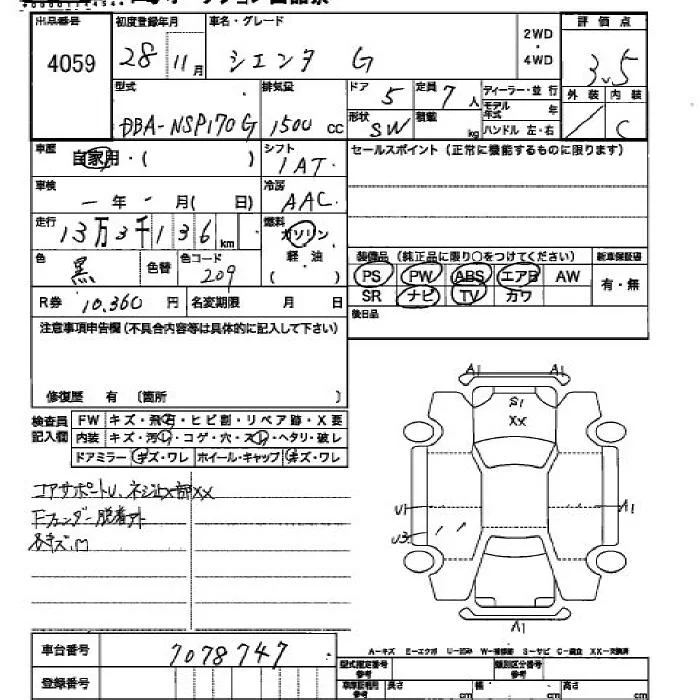 出品番号 初度登録年月 車名・グレード 2WD・4WD 評価点
4059 28 11月 シエンタ G 3.5
型式 排気量 ドア 5 定員 7人 ディーラー・並行 外装 内装
DBA-NSP170G 1500cc 形状 SW 積載 kg モデル年式 年 ハンドル 左・右 C
車歴 自家用・( ) シフト 1AT セールスポイント(正常に機能するものに限ります)
車検 一年 月( 日) 冷房 AAC
走行 13万3千136km 燃料 ガソリン
色 黒 色替 色コード 209 軽油 ( ) 装備品(純正品に限り○をつけてください) 新車保証書
PS PW ABS エアB AW 有・無
R券 10,360円 名変期限 月 日 SR ナビ TV カワ
注意事項申告欄(不具合内容等は具体的に記入して下さい) 後日品
修復歴 有 〔箇所 〕
検査員記入欄 FW キズ・飛石・ヒビ割・リペア跡・X要
内装 キズ・汚レ・コゲ・穴・スレ・ヘタリ・破レ
ドアミラー キズ・ワレ ホイール・キャップ キズ・ワレ
コアサポートU、ネジ止メ部XX
Fフェンダー脱着アト
各キズ、
A1 A1
S1
XX
U1 A1
U3
A1
車台番号 7078747
A-キズ E-エクボ U-凹み W-補修跡 S-サビ C-腐食 XX-交換済
登録番号 型式指定番号 参考 類別区分番号 参考
車庫証明用 参考 長さ cm 幅 cm 高さ cm